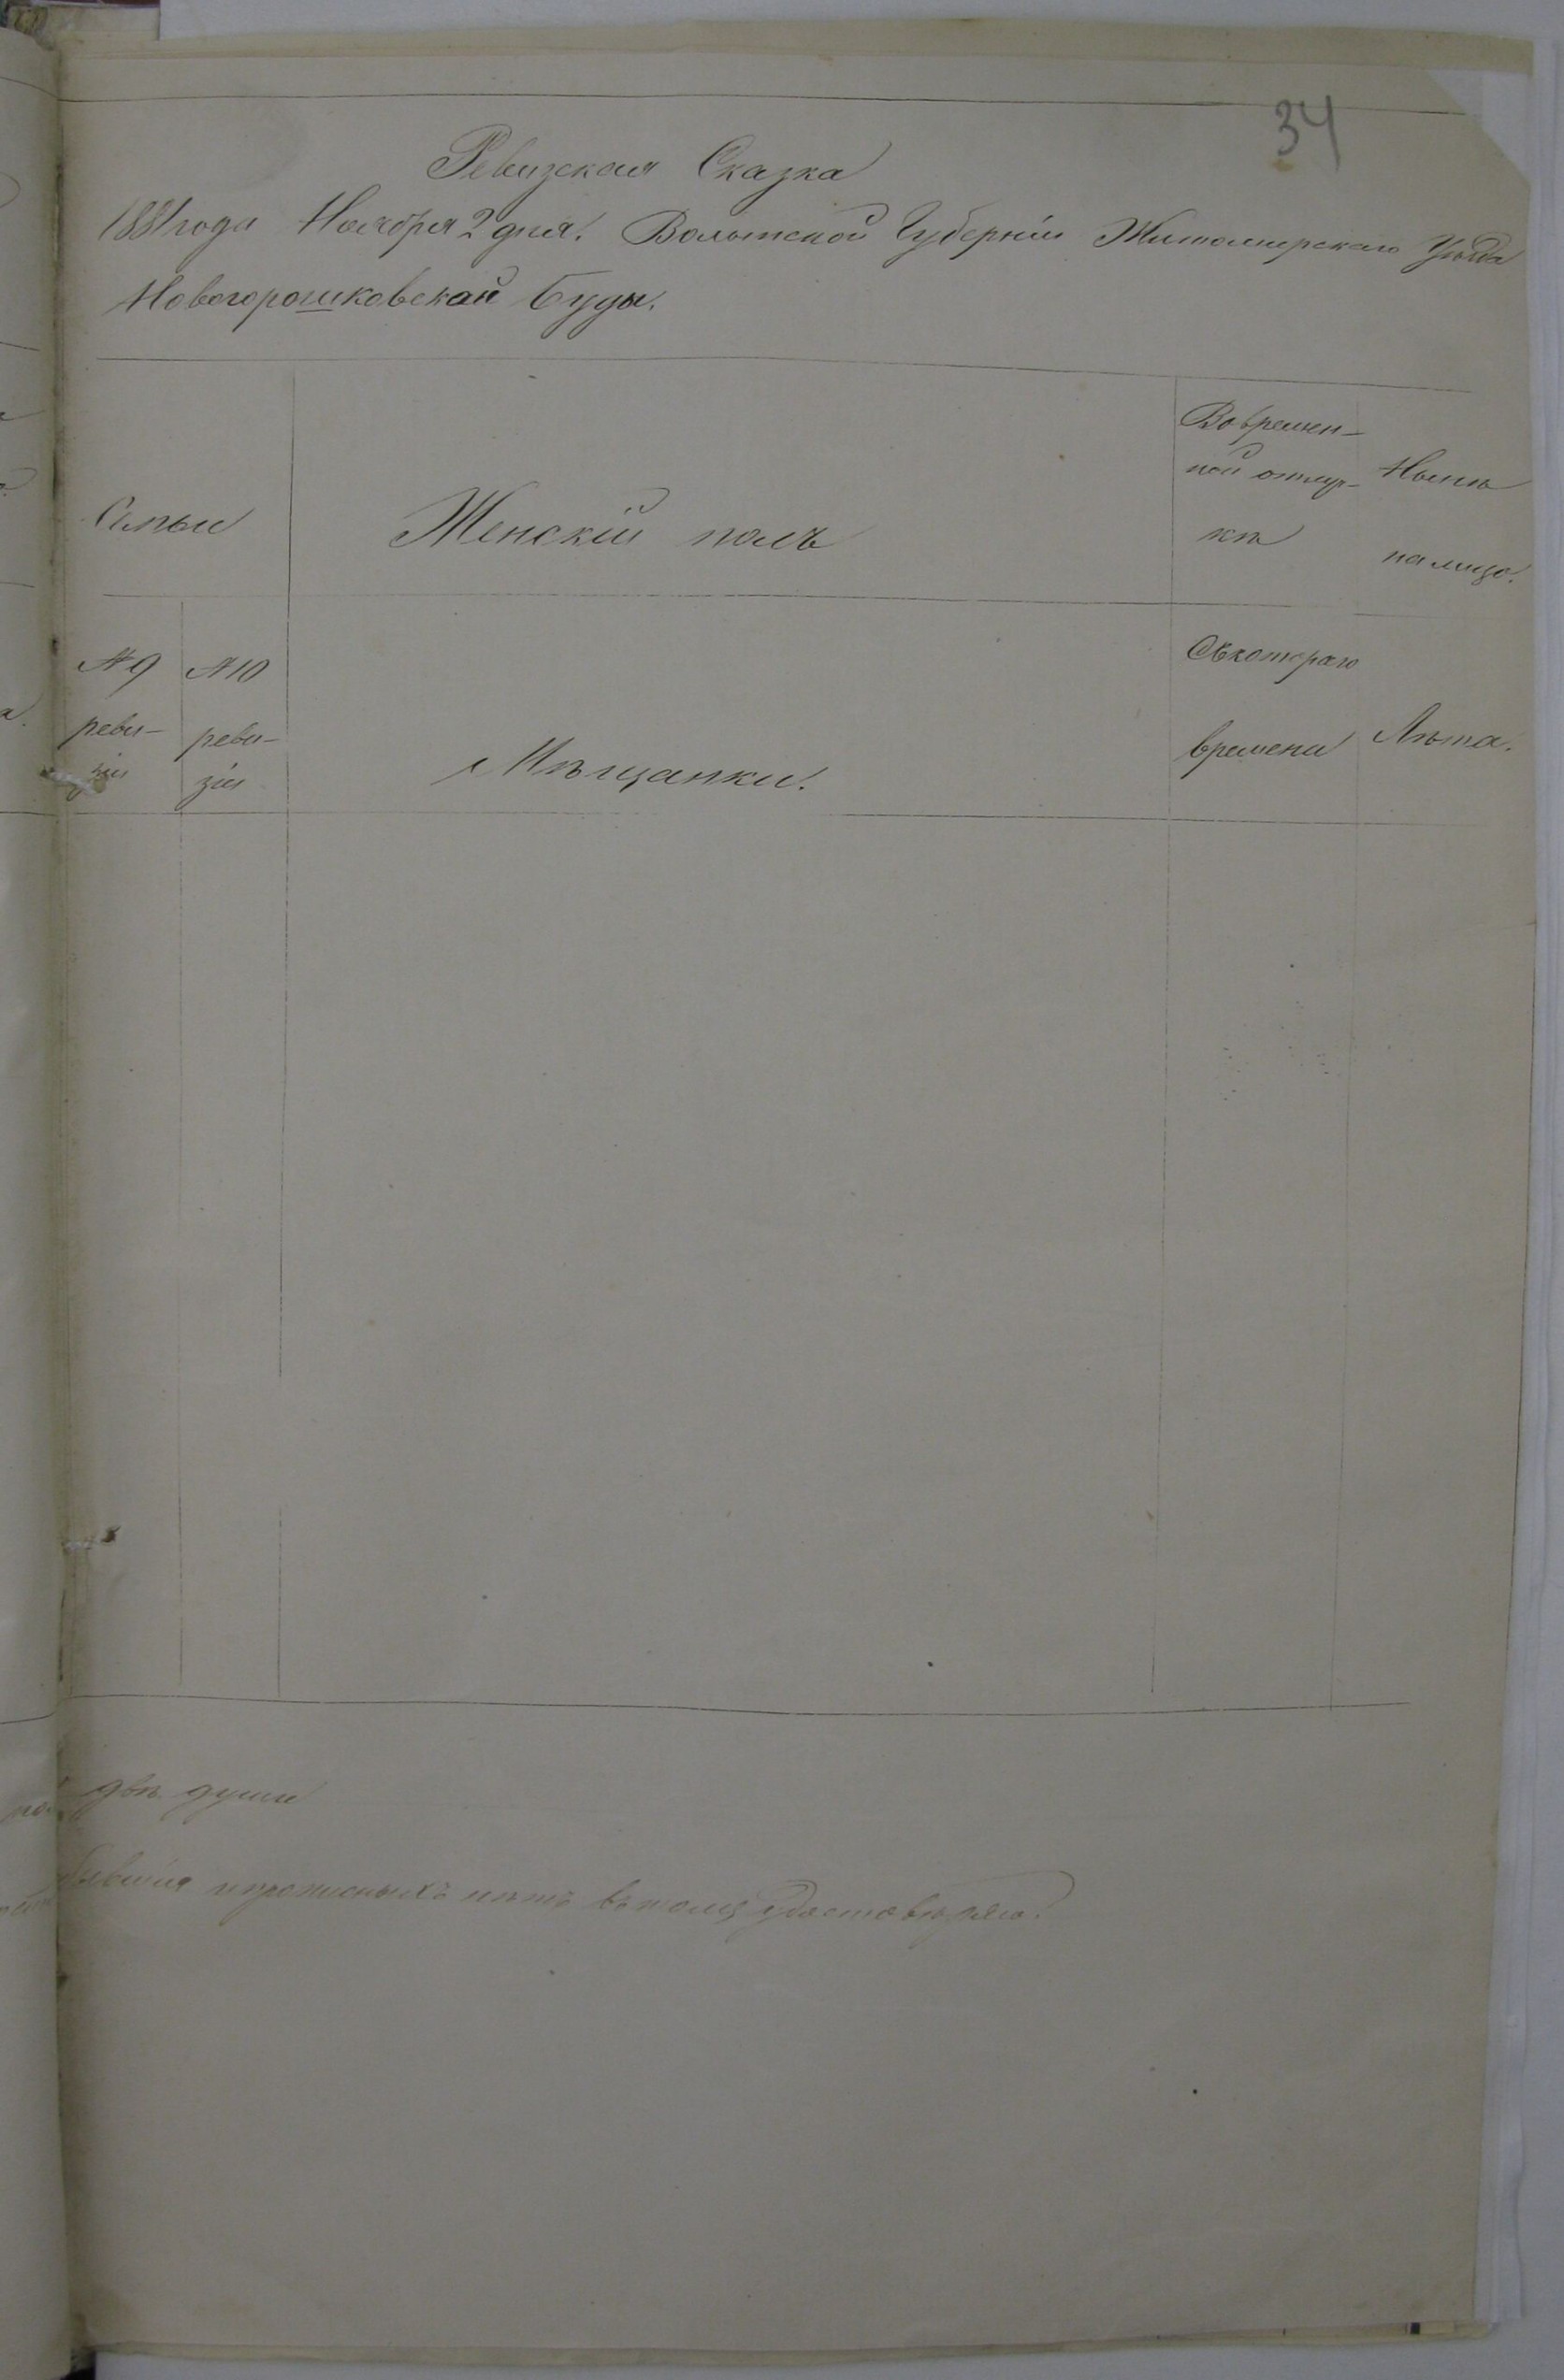 34
Ревизская Сказка
1881 года Ноября 2 дня. Волынской Губерніи Житомирскаго Уѣзда
Новогорошковской Буды.
Семьи
Женскій полъ
Во времен-
ной отлуч-
кѣ
Нынѣ
на лицо.
№ 9
реви-
зіи
№ 10
реви-
зіи
Мѣщанки.
Съкотораго
времени
Лѣта.
двѣ души
прописныхъ нѣтъ въ томъ удостовѣряю.